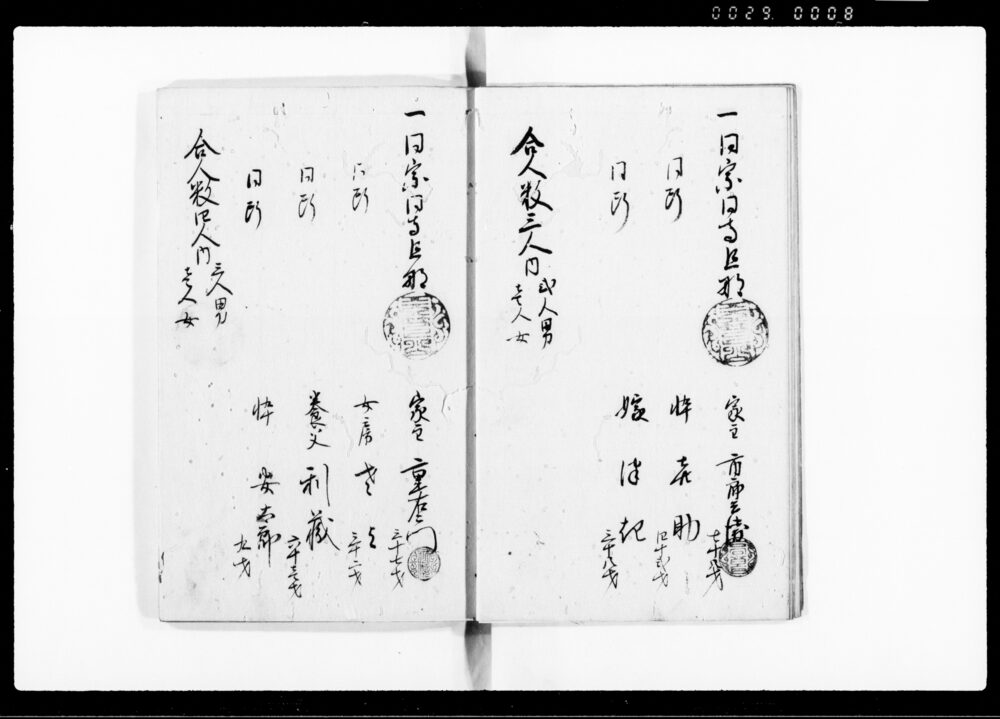 0029. 0008
一同宗同寺旦那 家主 市郎兵衛 七十八才
同断 悴 喜助 四十弐才
同断 嫁 津起 三十八才
合人数三人内 弐人男
壱人女
一同宗同寺旦那 家主 重右衛門 三十七才
同断 女房 三十二才
同断 養父 利蔵 六十三才
同断 悴 安太郎 九才
合人数四人内 三人男
壱人女